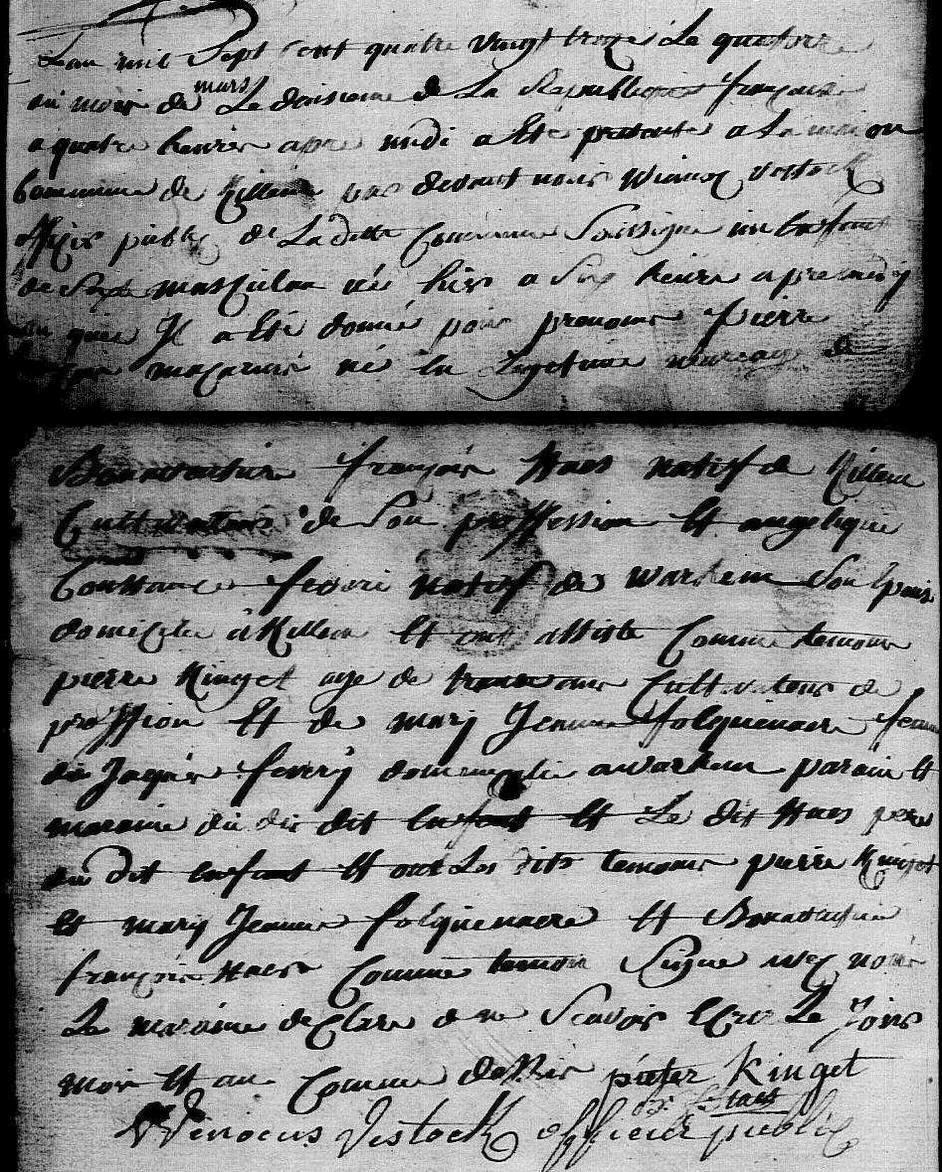 Lan mil Sept Cent quatre vingt treze Le quatorze
du mois de mars Le deusieme de La Republique francaise
a quatre heures apre midi a Ete presente a La maison
Commune de Killem par devant nous Winoc Vestock
officier public de Ladite Commune Soussigne un Enfant
de Sexe masculin né hier a Six heures apremidy
au quel Il a Eté donné pour prenoms Pierre
macarius né en Legetime mareage de
Bonaventure francois Haes natif de Killem
Cultivateur de Son proffession Et angelique
Constance fevri natif de warhem Son Epouse
domicilie a Killem Et ont assiste Comme temoins
pierre Kinget age de ans Cultivateur de
proffession Et de marij Jeanne folquenaere femme
de Jaques feverij domicilie a warhem parain Et
maraine du dit Enfant Et Le dit Haes pere
du dit Enfant Et ont Les dits temoins pierre Kinget
Et marij Jeanne folquenaere Et Bonaventure
francois Haes Comme temoin Signe avec nous
Le maraine declare de ne Scavoir Ecrire Le Jour
mois Et an Comme dessus pieter Kinget
Haes
Winocus Vestock officier public